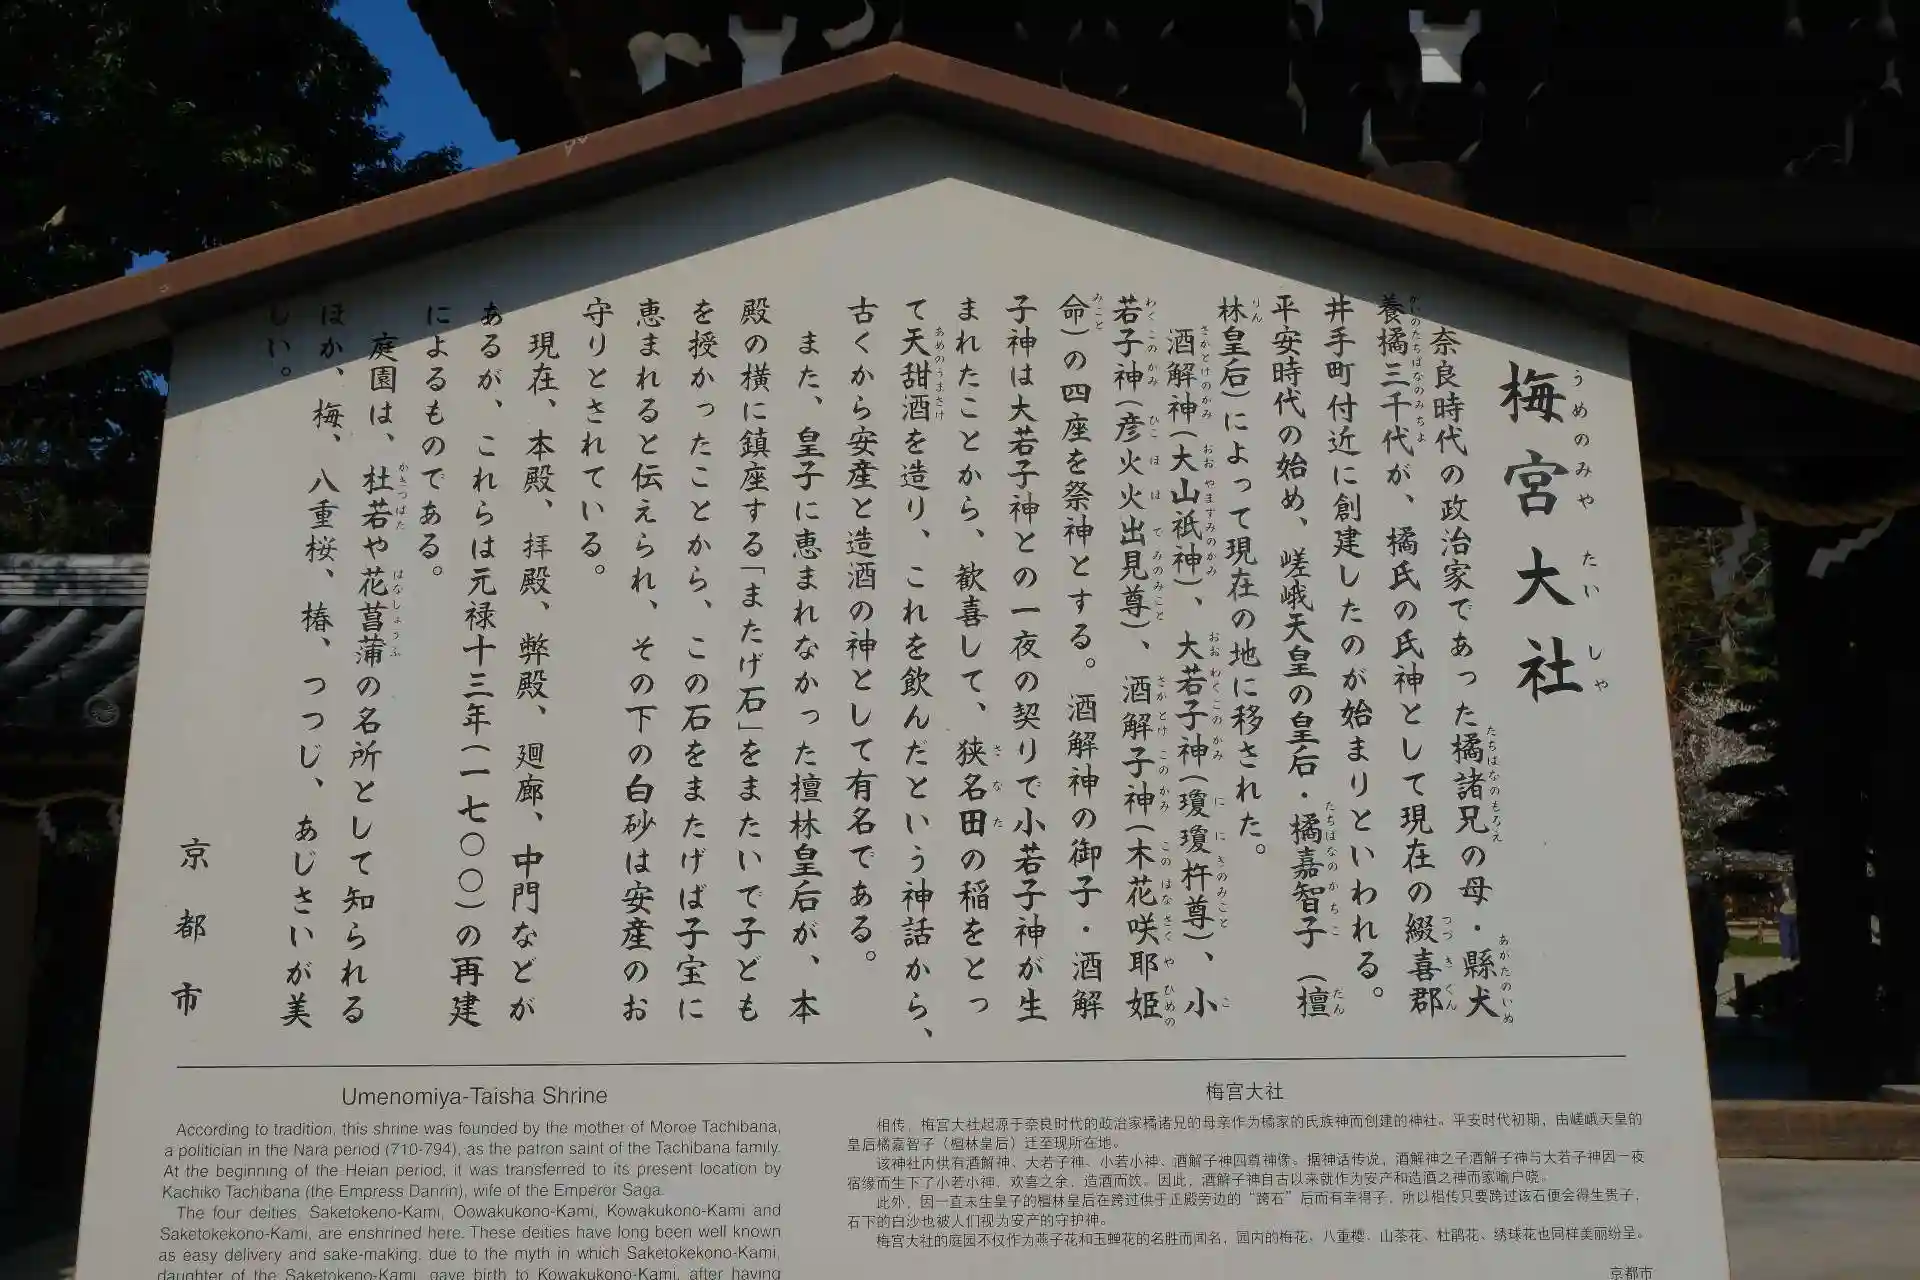 梅宮大社
奈良時代の政治家であった橘諸兄の母・縣犬
養橘三千代が、橘氏の氏神として現在の綴喜郡
井手町付近に創建したのが始まりといわれる。
平安時代の始め、嵯峨天皇の皇后・橘嘉智子（檀
林皇后）によって現在の地に移された。
酒解神（大山祇神）、大若子神（瓊瓊杵尊）、小
若子神（彦火火出見尊）、酒解子神（木花咲耶姫
命）の四座を祭神とする。酒解神の御子・酒解
子神は大若子神との一夜の契りで小若子神が生
まれたことから、歓喜して、狭名田の稲をとっ
て天甜酒を造り、これを飲んだという神話から、
古くから安産と造酒の神として有名である。
また、皇子に恵まれなかった檀林皇后が、本
殿の横に鎮座する「またげ石」をまたいで子ども
を授かったことから、この石をまたげば子宝に
恵まれると伝えられ、その下の白砂は安産のお
守りとされている。
現在、本殿、拝殿、弊殿、廻廊、中門などが
あるが、これらは元禄十三年（一七〇〇）の再建
によるものである。
庭園は、杜若や花菖蒲の名所として知られる
ほか、梅、八重桜、椿、つつじ、あじさいが美
しい。
京都市
Umenomiya-Taisha Shrine
According to tradition, this shrine was founded by the mother of Moroe Tachibana,
a politician in the Nara period (710-794), as the patron saint of the Tachibana family.
At the beginning of the Heian period, it was transferred to its present location by
Kachiko Tachibana (the Empress Danrin), wife of the Emperor Saga.
The four deities, Saketokeno-Kami, Oowakukono-Kami, Kowakukono-Kami and
Saketokekono-Kami, are enshrined here. These deities have long been well known
as easy delivery and sake-making, due to the myth in which Saketokekono-Kami,
daughter of the Saketokeno-Kami, gave birth to Kowakukono-Kami, after having
梅宫大社
相传，梅宫大社起源于奈良时代的政治家橘诸兄的母亲作为橘家的氏族神而创建的神社。平安时代初期，由嵯峨天皇的
皇后橘嘉智子（檀林皇后）迁至现所在地。
该神社内供有酒解神、大若子神、小若小神、酒解子神四尊神像。据神话传说，酒解神之子酒解子神与大若子神因一夜
宿缘而生下了小若小神，欢喜之余，造酒而饮。因此，酒解子神自古以来就作为安产和造酒之神而家喻户晓。
此外，因一直未生皇子的檀林皇后在跨过供于正殿旁边的“跨石”后而有幸得子，所以相传只要跨过该石便会得生贵子，
石下的白沙也被人们视为安产的守护神。
梅宫大社的庭园不仅作为燕子花和玉蝉花的名胜而闻名，园内的梅花、八重樱、山茶花、杜鹃花、绣球花也同样美丽纷呈。
京都市